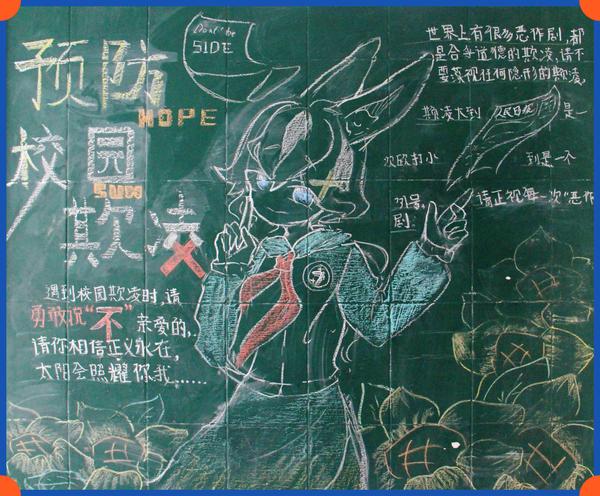 预防
HOPE
校园
SUN
欺凌
Don't be
SIDE
遇到校园欺凌时,请
勇敢说“不”亲爱的,
请你相信正义永在,
太阳会照耀你我……
世界上有很多恶作剧,都
是合乎道德的欺凌,请不
要蔑视任何隐形的欺凌,
欺凌大到
是一
次殴打小
到是一个
外号,
剧.
请正视每一次“恶作